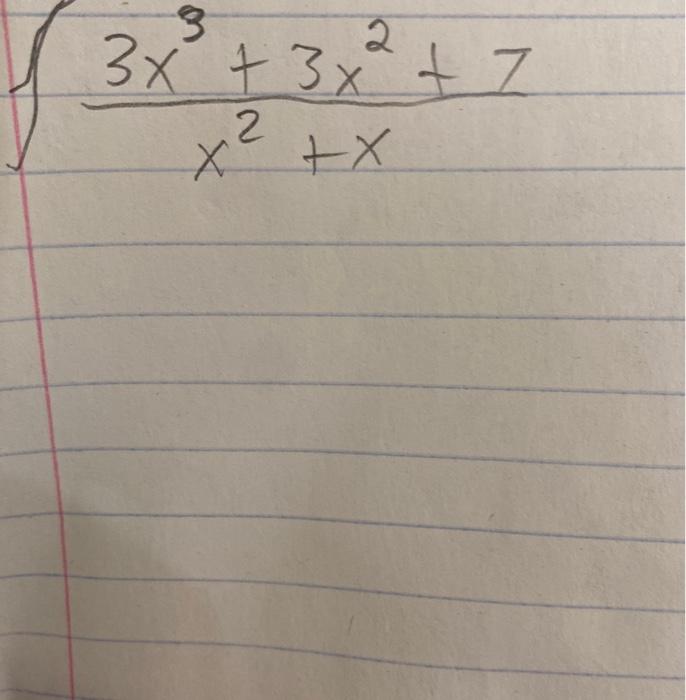 ∫ (3x³ + 3x² + 7)/(x² + x)